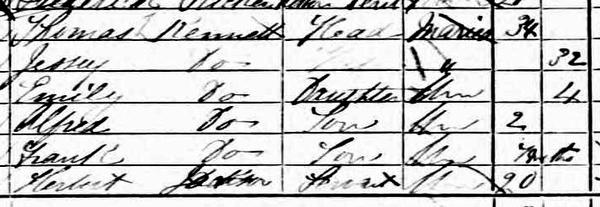 Thomas Kennett Head Married 34
Jessey Do " 32
Emily Do Daughter Unm 4
Alfred Do Son Unm 2
Frank Do Son Unm Mths
Herbert Servant Unm 20